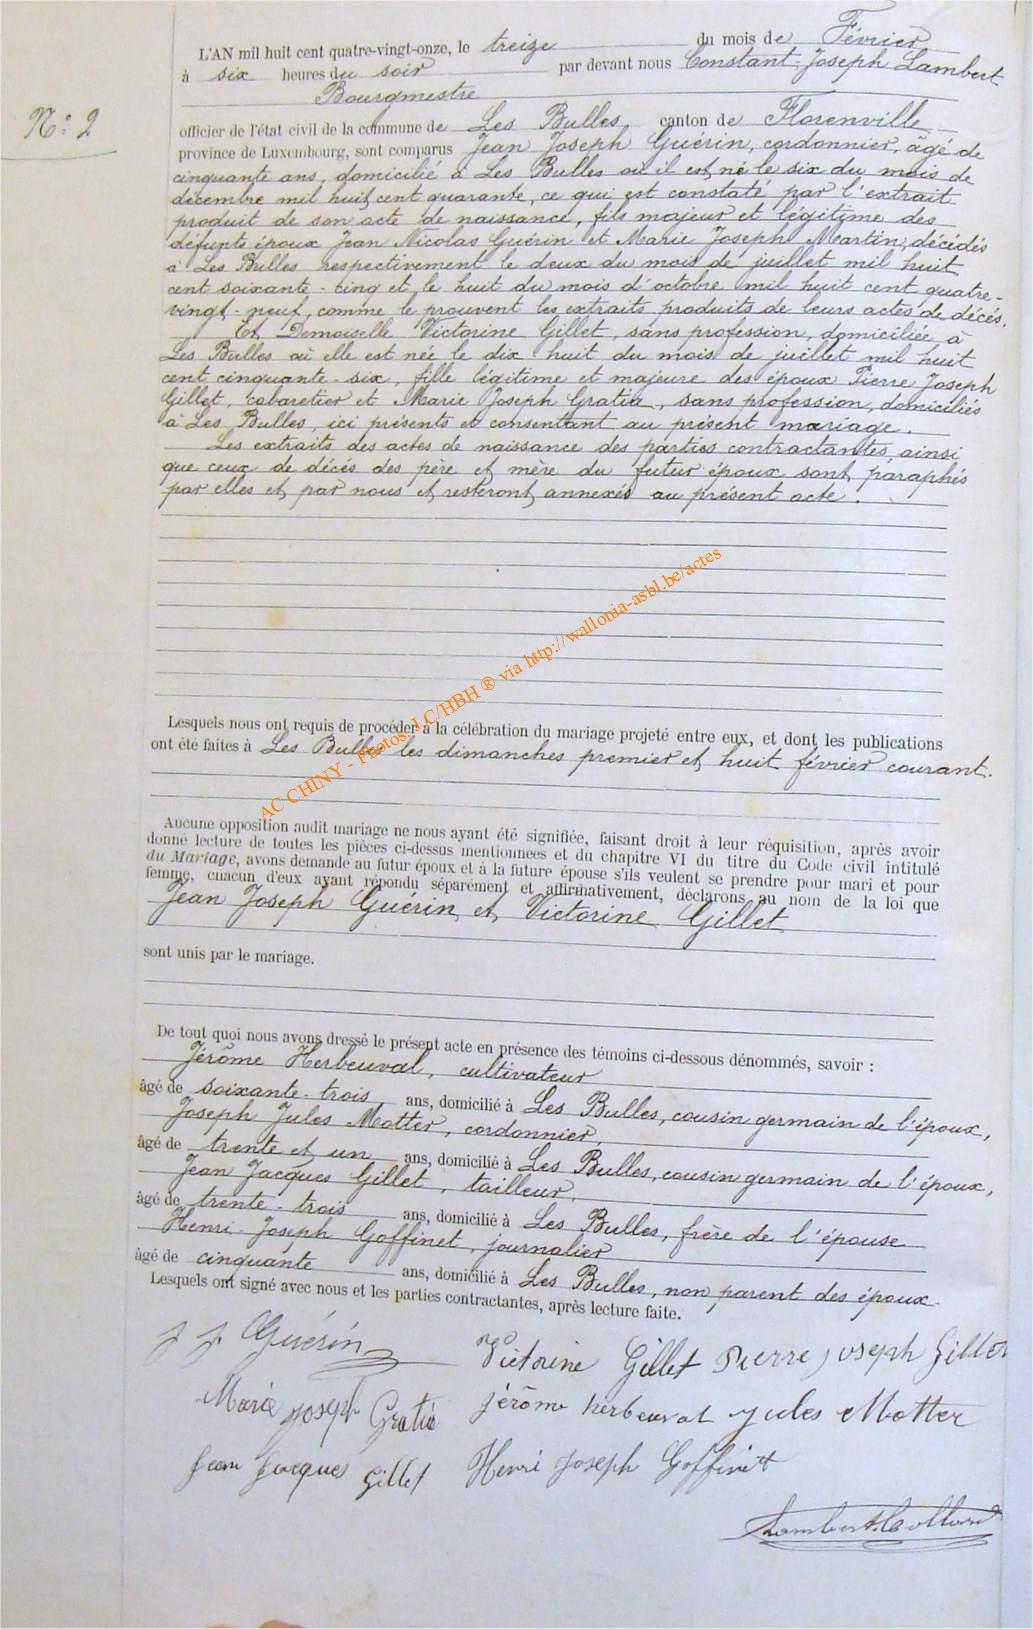 L'AN mil huit cent quatre-vingt-onze, le treize du mois de Février
à six heures du soir par devant nous Constant-Joseph Lambert
Bourgmestre
N.o 2
officier de l'état civil de la commune de Les Bulles canton de Florenville
province de Luxembourg, sont comparus Jean Joseph Guérin, cordonnier, âgé de
cinquante ans, domicilié à Les Bulles où il est né le six du mois de
décembre mil huit cent quarante, ce qui est constaté par l'extrait
produit de son acte de naissance, fils majeur et légitime des
défunts époux Jean Nicolas Guérin et Marie Joseph Martin, décédés
à Les Bulles respectivement le deux du mois de juillet mil huit
cent soixante-cinq et le huit du mois d'octobre mil huit cent quatre-
vingt-neuf, comme le prouvent les extraits produits de leurs actes de décès.
Et Demoiselle Victorine Gillet, sans profession, domiciliée à
Les Bulles où elle est née le dix huit du mois de juillet mil huit
cent cinquante-six, fille légitime et majeure des époux Pierre Joseph
Gillet, cabaretier et Marie Joseph Gratia, sans profession, domiciliés
à Les Bulles, ici présents et consentant au présent mariage.
Les extraits des actes de naissance des parties contractantes, ainsi
que ceux de décès des père et mère du futur époux sont paraphés
par elles et par nous et resteront annexés au présent acte.
AC CHINY - Photos J.C/HBH ® via http://wallonia-asbl.be/actes
Lesquels nous ont requis de procéder à la célébration du mariage projeté entre eux, et dont les publications
ont été faites à Les Bulles les dimanches premier et huit février courant.
Aucune opposition audit mariage ne nous ayant été signifiée, faisant droit à leur réquisition, après avoir
donné lecture de toutes les pièces ci-dessus mentionnées et du chapitre VI du titre du Code civil intitulé
du Mariage, avons demandé au futur époux et à la future épouse s'ils veulent se prendre pour mari et pour
femme, chacun d'eux ayant répondu séparément et affirmativement, déclarons au nom de la loi que
Jean Joseph Guérin et Victorine Gillet
sont unis par le mariage.
De tout quoi nous avons dressé le présent acte en présence des témoins ci-dessous dénommés, savoir :
Jérôme Herbeuval, cultivateur
âgé de soixante-trois ans, domicilié à Les Bulles, cousin germain de l'époux,
Joseph Jules Motter, cordonnier,
âgé de trente et un ans, domicilié à Les Bulles, cousin germain de l'époux,
Jean Jacques Gillet, tailleur,
âgé de trente-trois ans, domicilié à Les Bulles, frère de l'épouse
Henri-Joseph Goffinet, journalier
âgé de cinquante ans, domicilié à Les Bulles, non parent des époux.
Lesquels ont signé avec nous et les parties contractantes, après lecture faite.
J J Guérin Victorine Gillet Pierre Joseph Gillet
Marie Joseph Gratia Jérôme herbeuval Jules Motter
Jean Jacques Gillet Henri Joseph Goffinet
Lambert-Collard